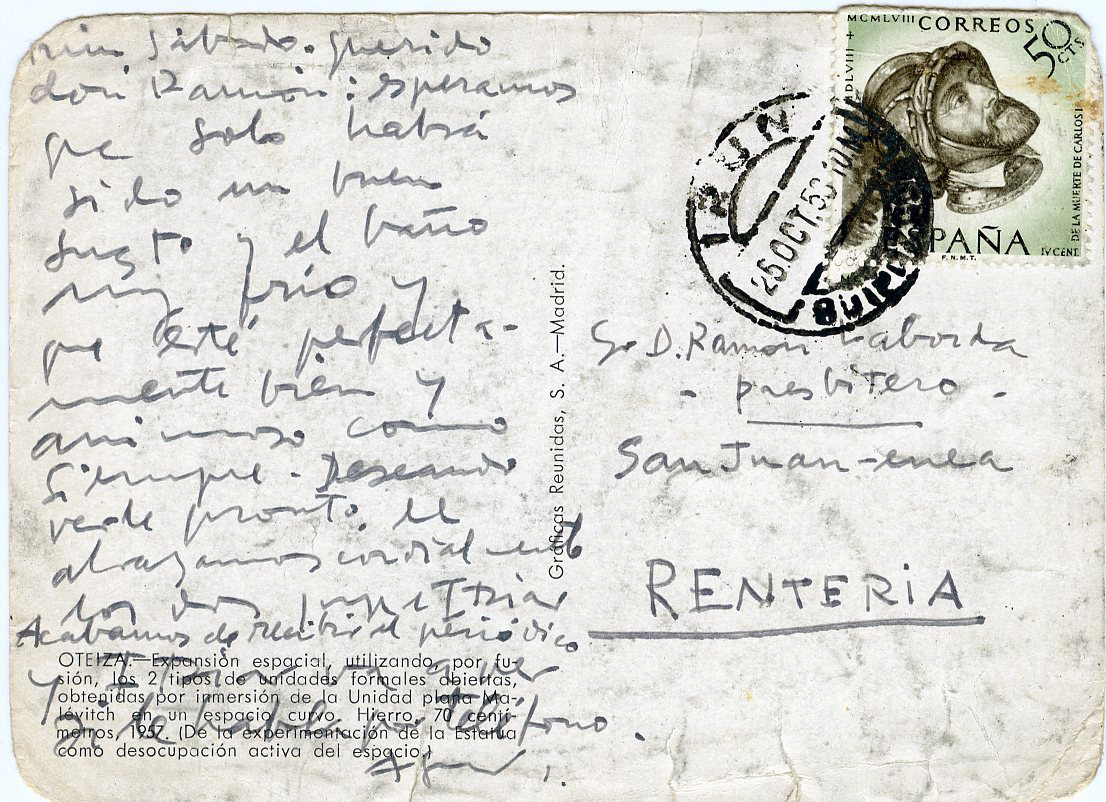 Irun Sábado. querido
don Ramón: esperamos
que solo habrá
sido un buen
susto y el baño
muy frío y
que esté perfecta-
mente bien y
animoso como
siempre. Deseando
verle pronto, le
abrazamos cordialmente
los dos Itziar
Acabamos de recibir el periódico
y Itziar va a ver
si le habla por teléfono.
OTEIZA.—Expansión espacial, utilizando, por fu-
sión, los 2 tipos de unidades formales abiertas,
obtenidas por inmersión de la Unidad plana Ma-
lévitch en un espacio curvo. Hierro, 70 centí-
metros, 1957. (De la experimentación de la Estatua
como desocupación activa del espacio.)
Gráficas Reunidas, S. A.—Madrid.
MCMLVIII + MDLVIII
CORREOS
50 CTS
ESPAÑA
IV CENT. DE LA MUERTE DE CARLOS I
F.N.M.T.
IRUN
25 OCT. 58 10M
GUIPUZCOA
Sr D. Ramón Laborda
- presbítero -
San Juan-enea
RENTERIA